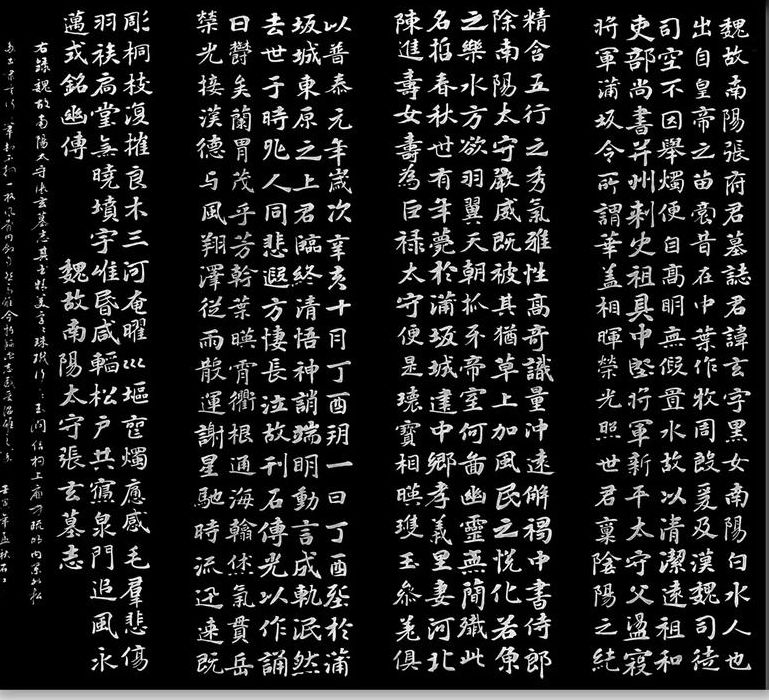 魏故南陽張府君墓誌君諱玄字黑女南陽白水人也
出自皇帝之苗裔昔在中葉作牧周殷爰及漢魏司徒
司空不因舉燭便自高明無假置水故以清潔遠祖和
吏部尚書并州刺史祖具中堅將軍新平太守父盪寇
將軍蒲坂令所謂華蓋相暉榮光照世君稟陰陽之純
精含五行之秀氣雅性高奇識量沖遠解褐中書侍郎
除南陽太守嚴威既被其猶草上加風民之悅化若魚
之樂水方欲羽翼天朝抓牙帝室何啚幽靈無簡殲此
名哲春秋世有年薨於蒲坂城建中鄉孝義里妻河北
陳進壽女壽為巨祿太守便是瓌寶相暎瓊玉參差俱
以普泰元年歲次辛亥十月丁酉朔一日丁酉葬於蒲
坂城東原之上君臨終清悟神誚端明動言成軌泯然
去世于時兆人同悲遐方悽長泣故刊石傳光以作誦
曰鬱矣蘭冑茂乎芳幹葉暎霄衢根通海翰休氣貫岳
榮光接漢德与風翔澤從雨散運謝星馳時流迅速既
彫桐枝復摧良木三河奄曜巛堀燭應感毛羣悲傷
羽族扃堂無曉墳宇唯昏咸韜松戶共寫泉門追風永
邁式銘幽傳 魏故南陽太守張玄墓志
右錄魏故南陽太守張玄墓志其書精美